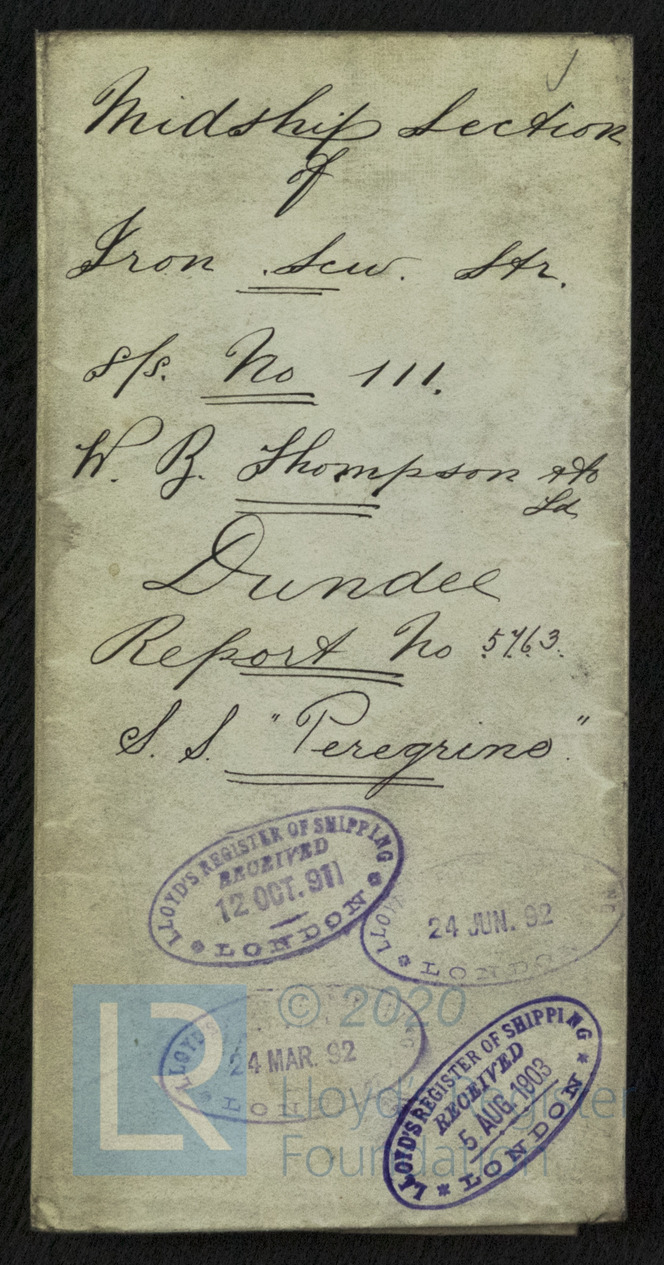 Midship Section
of
Iron Scw. Str.
s/s. No 111.
W. B. Thompson & Co
Ld
Dundee
Report No 5763.
S. S. "Peregrine"
LLOYD'S REGISTER OF SHIPPING
RECEIVED
12 OCT. 91
LONDON
24 JUN. 92
LONDON
24 MAR. 92
LON
LLOYD'S REGISTER OF SHIPPING
RECEIVED
5 AUG. 1903
LONDON
LR
© 2020
Lloyd's Register
Foundation